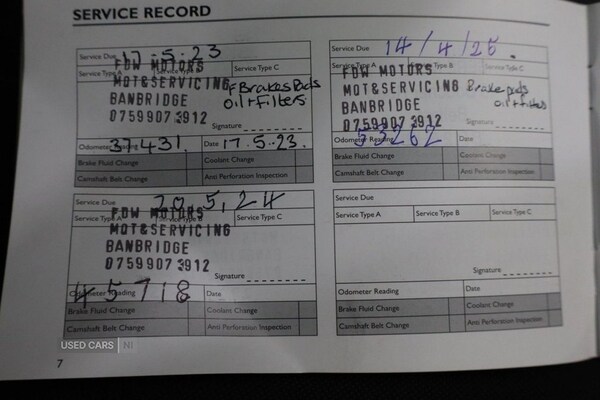 SERVICE RECORD
Service Due 17-5-23
Service Type A Service Type B Service Type C
FDW MOTORS
MOT&SERVICING
BANBRIDGE
07599073912
F Brakes Pads
oil+Filters
Signature
Odometer Reading 37431 Date 17.5.23.
Brake Fluid Change Coolant Change
Camshaft Belt Change Anti Perforation Inspection
Service Due 14/4/25.
Service Type A Service Type B Service Type C
FDW MOTORS
MOT&SERVICING
BANBRIDGE
07599073912
Brake pads
oil+filters
Signature
Odometer Reading 53262 Date
Brake Fluid Change Coolant Change
Camshaft Belt Change Anti Perforation Inspection
Service Due 20,5,24
Service Type A Service Type B Service Type C
FDW MOTORS
MOT&SERVICING
BANBRIDGE
07599073912
Signature
Odometer Reading 45718 Date
Brake Fluid Change Coolant Change
Camshaft Belt Change Anti Perforation Inspection
Service Due
Service Type A Service Type B Service Type C
Signature
Odometer Reading Date
Brake Fluid Change Coolant Change
Camshaft Belt Change Anti Perforation Inspection
USED CARS NI
7